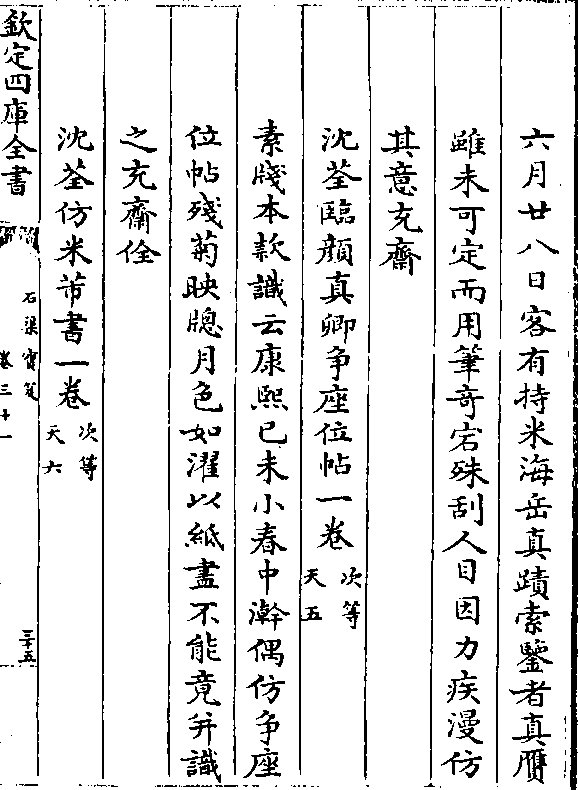 六月廿八日客有持米海岳真蹟索鑒者真贋
雖未可定而用筆奇宕殊刮人目因力疾漫仿
其意充齋
沈荃臨顔真卿争座位帖一卷 次等天五
素牋本款識云康熙已未小春中澣偶仿争座
位帖殘菊映牕月色如濯以紙盡不能竟并識
之充齋佺
沈荃仿米芾書一卷 次等天六
欽定四庫全書
石渠寳笈
卷三十一
三十五